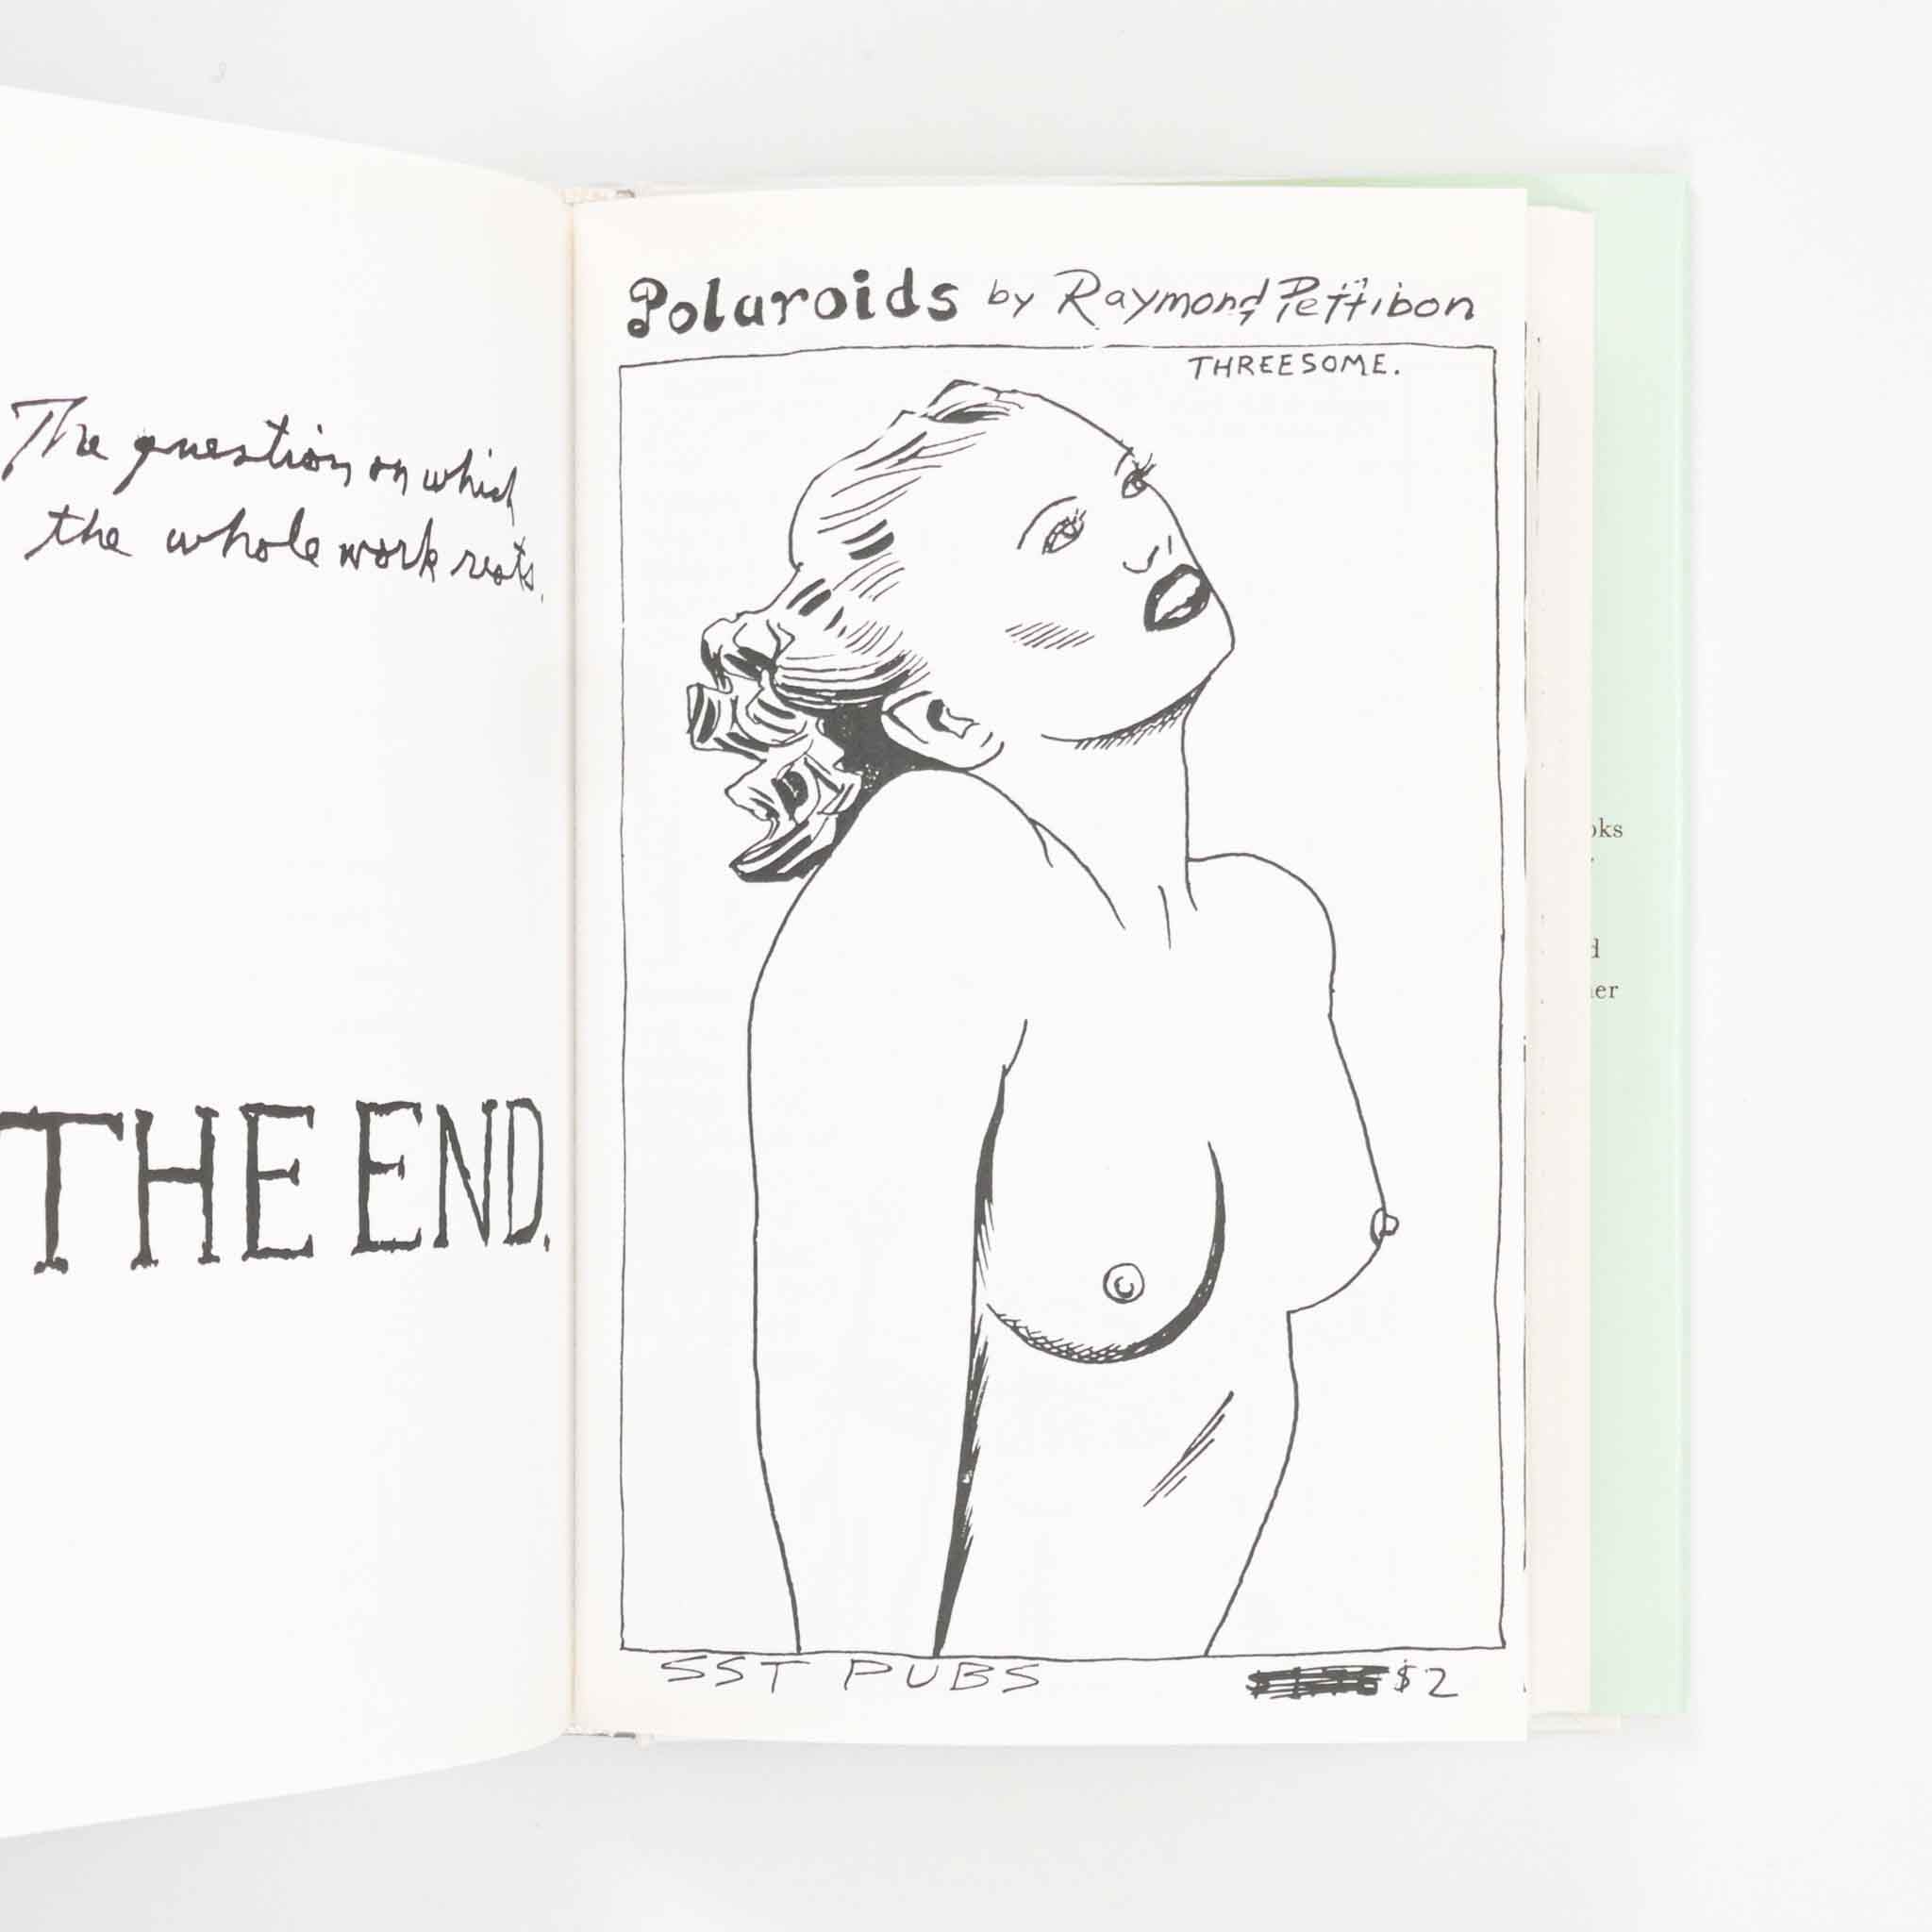 The question on which
the whole work rests.
THE END.
Polaroids by Raymond Pettibon
THREESOME.
SST PUBS
$2
oks
d
er